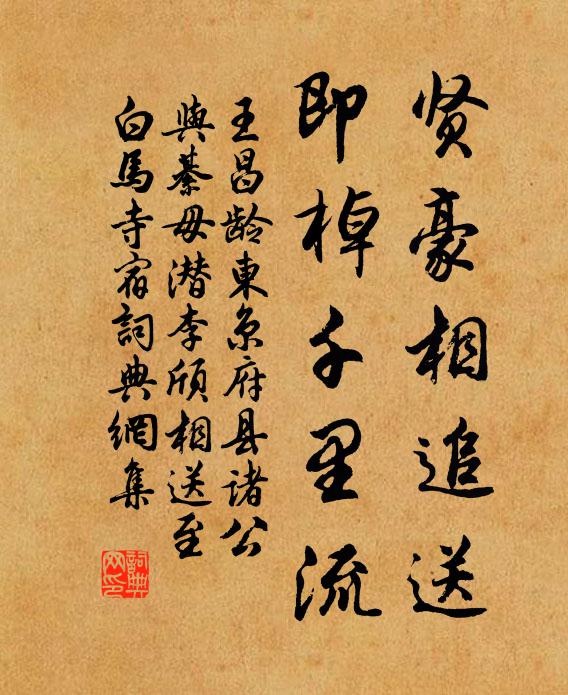 贤豪相追送
即棹千里流
王昌龄東京府县诸公
與綦毋潜李颀相送至
白馬寺宿詞典網集
詞典网印